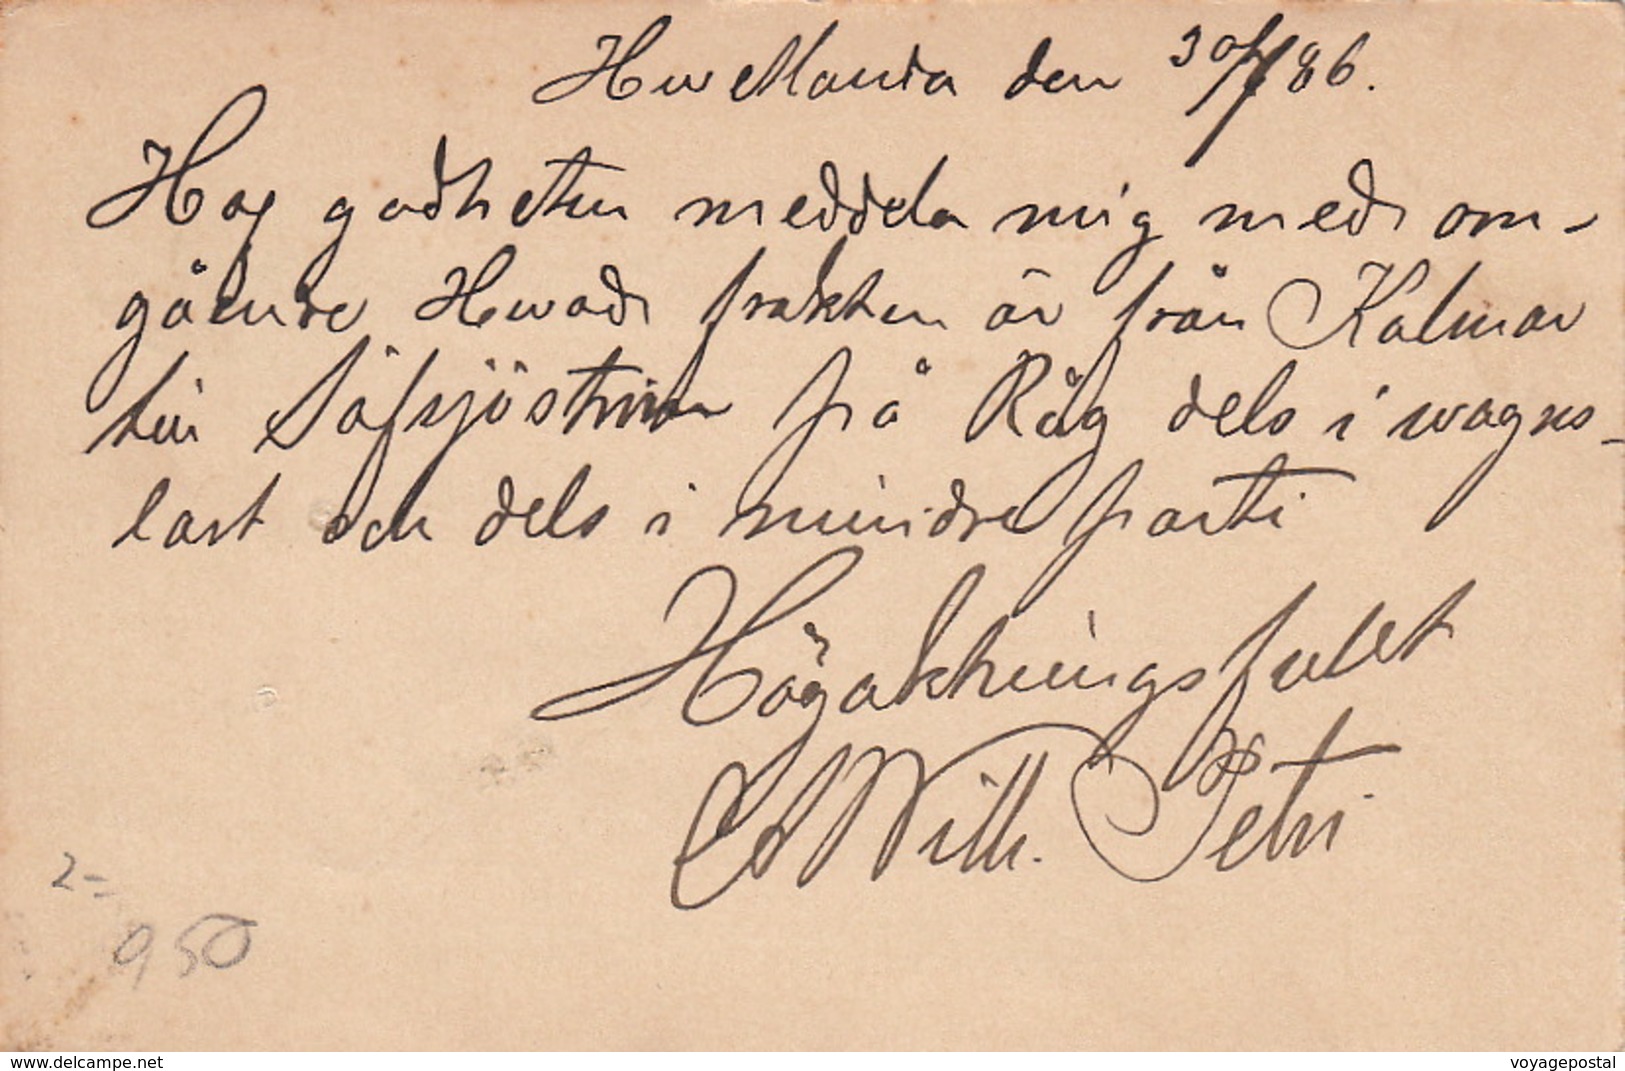 Hwetlanda den 30/7 86.
Haf godheten meddela mig med om-
gående Hwad frakten är från Kalmar
till Säfsjöström på Råg dels i wagns-
last och dels i mindre parti
Högaktningsfullt
Wilh. Petri
2-
950
www.delcampe.net
voyagepostal